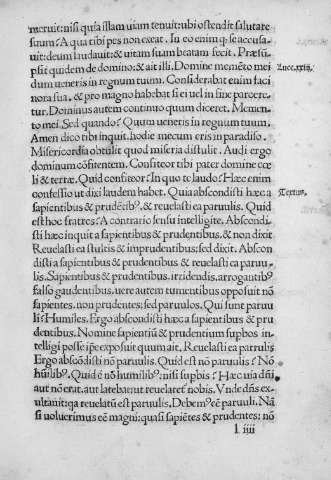 meruit: nisi quia istam uiam tenuit: ubi ostendit salutare
suum? A qua tibi pes non exeat. In eo enim q; se accusa-
uit: deum laudauit: & uitam suam beatam fecit. Præsu͂-
psit quidem de domino: & ait illi. Domine meme͂to mei
Luc. xxiii.
dum ueneris in regnum tuum. Considerabat enim faci
nora sua, & pro magno habebat si ei uel in fine parcere-
tur. Dominus autem continuo quum diceret. Memen-
to mei. Sed quando? Quum ueneris in regnum tuum.
Amen dico tibi inquit. hodie mecum eris in paradiso.
Misericordia obtulit quod miseria distulit. Audi ergo
dominum co͂fitentem. Confiteor tibi pater domine cœ
li & terræ. Quid confiteor? In quo te laudo? Hæc enim
confessio ut dixi laudem habet. Quia abscondisti hæc a
Textus.
sapientibus & prude͂tib9. & reuelasti ea paruulis. Quid
est hoc fratres? A contrario sensu intelligite. Abscondi-
sti hæc inquit a sapientibus & prudentibus. & non dixit
Reuelasti ea stultis & imprudentibus: sed dixit. Abscon
disti a sapientibus & prudentibus & reuelasti ea paruu-
lis. Sapientibus & prudentibus. irridendis. arrogantib9
falso gaudentibus. uere autem tumentibus opposuit no͂
sapientes. non prudentes: sed paruulos. Qui sunt paruu
li? Humiles. Ergo abscondisti hæc a sapientibus & pru
dentibus. Nomine sapientiu͂ & prudentium supbos in-
telligi posse ip͂e exposuit quum ait. Reuelasti ea paruulis
Ergo absco͂disti no͂ paruulis. Quid est no͂ paruulis? No͂
humilib9. Quid e͂ no͂ humilib9: nisi supbis? Hæc uia dn͂i
aut no͂ erat. aut latebat: ut reuelaret nobis. Vnde dn͂s ex-
ultauit: qa reuelatu͂ est paruulis. Debem9 ee͂ paruuli. Na͂
si uoluerimus ee͂ magni: quasi sapie͂tes & prudentes: no͂
l iiii